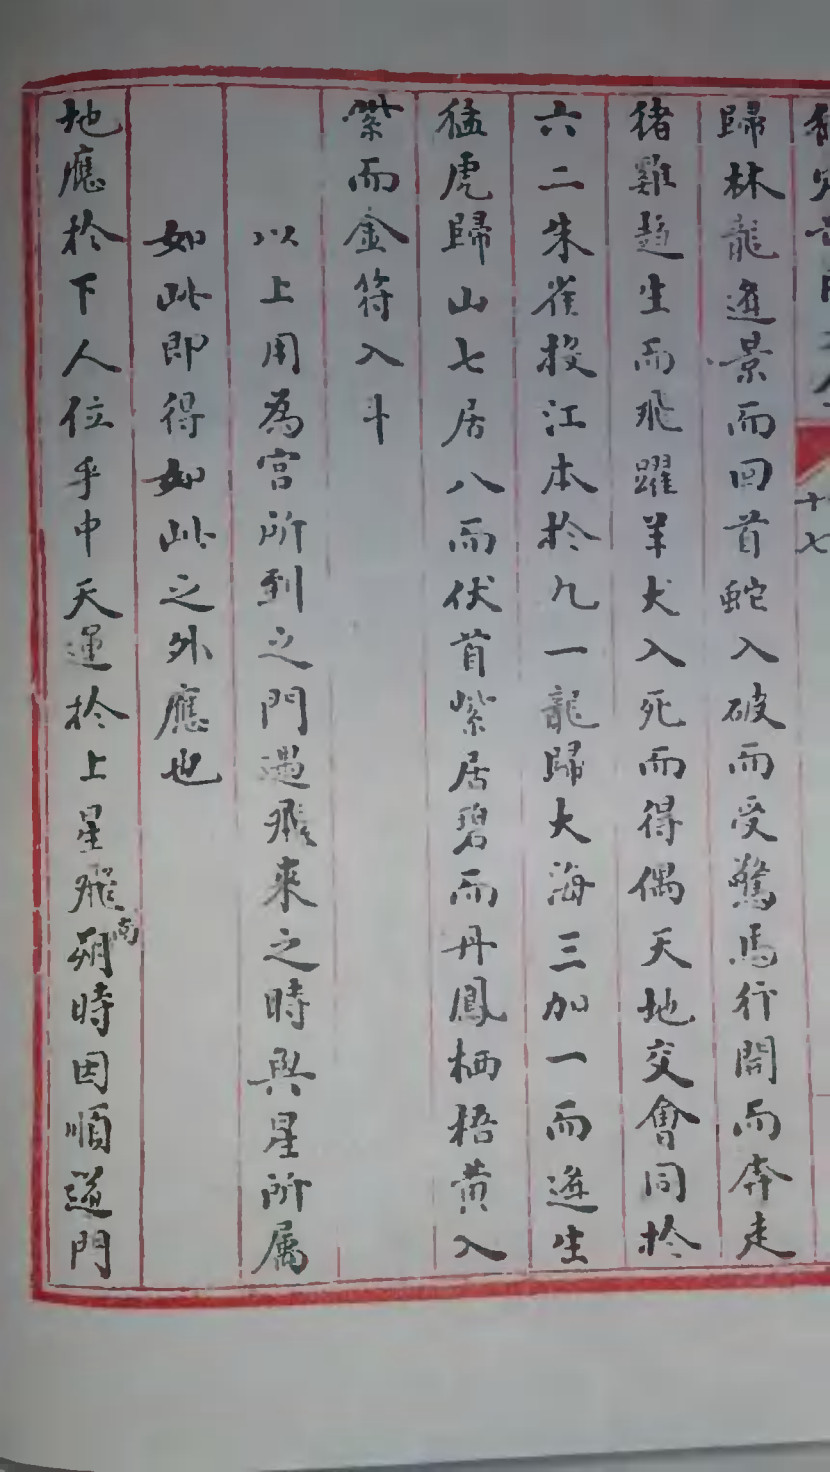 十七
歸林龍遁景而回首蛇入破而受驚馬行開而奔走
猪雞趨生而飛躍羊犬入死而得偶天地交會同於
六二朱雀投江本於九一龍歸大海三加一而遁生
猛虎歸山七居八而伏首紫居碧而丹鳳栖梧黄入
紫而金符入斗
以上用為宮所到之門遇飛來之時與星所属
如此即得如此之外應也
地應於下人位乎中天運於上星飛南朔時因順逆門